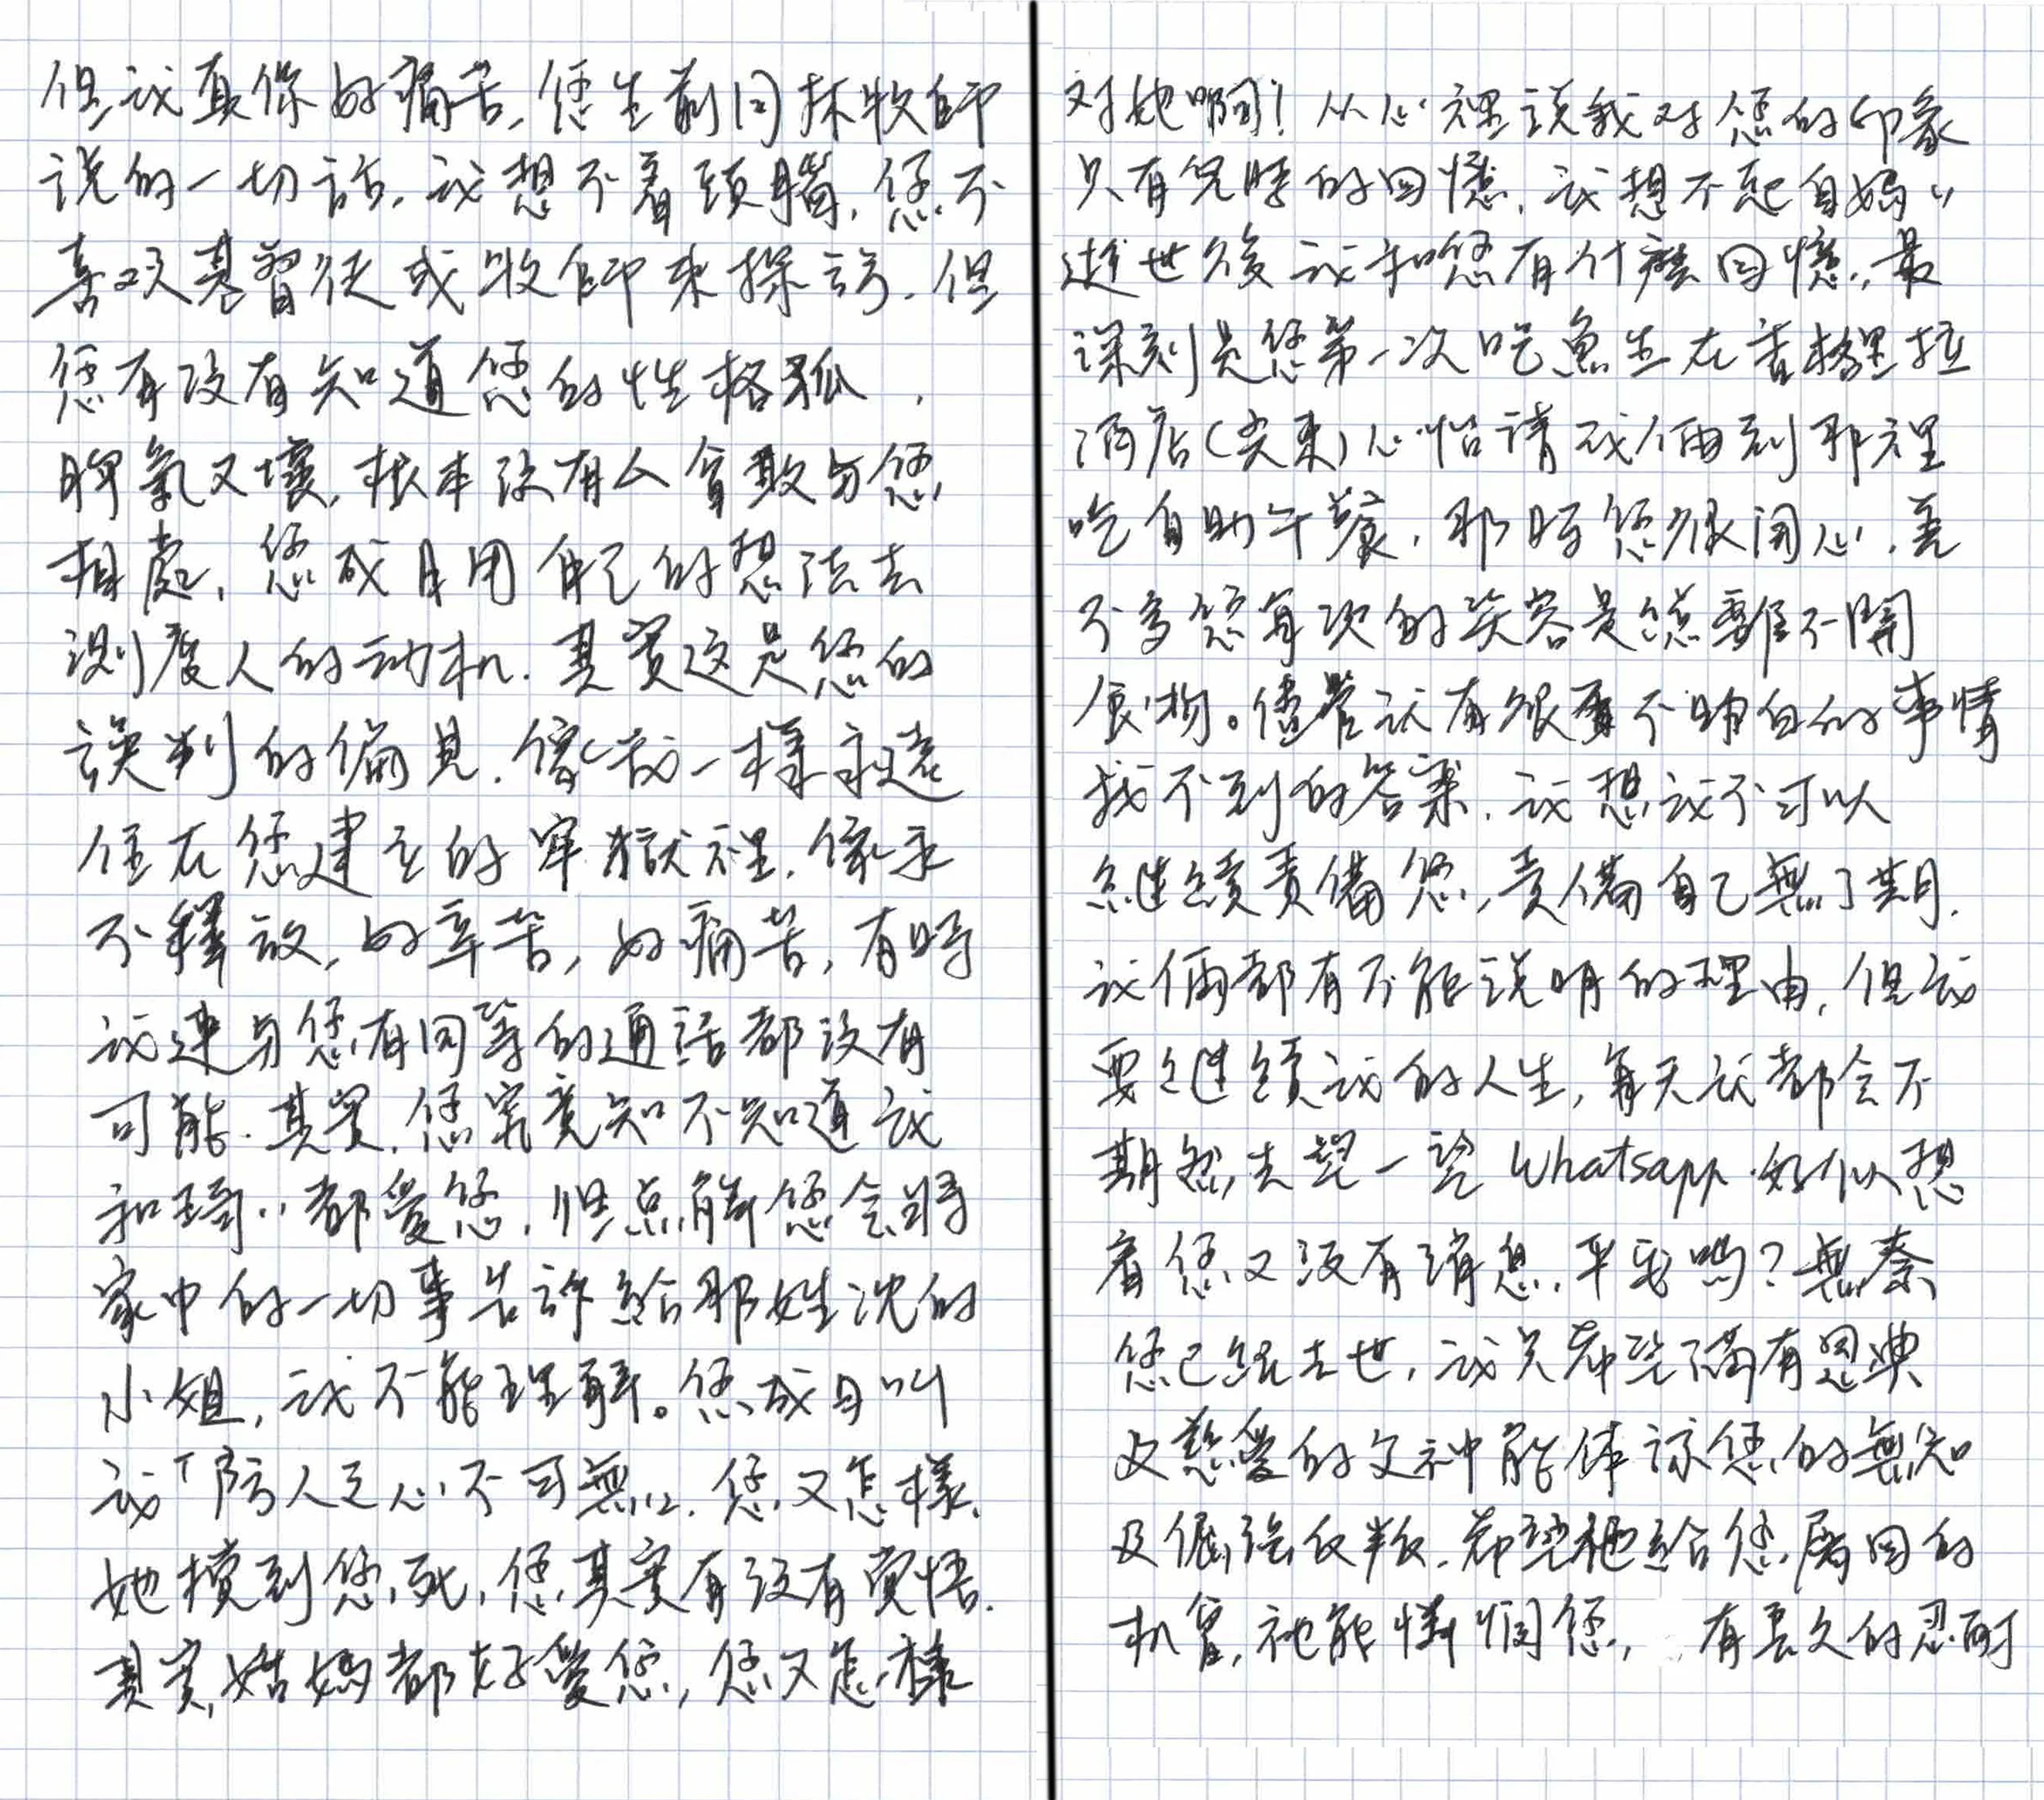 但我真係好痛苦,您生前同林牧師
說的一切話,我想不着頭腦,您不
喜欢基督徒或牧師來探訪,但
您有没有知道您的性格孤,
脾氣又壞,根本没有人會敢与您
相處,您成日用自己的想法去
測度人的动机.其實这是您的
誤判的偏見.像我一樣永遠
住在您建立的牢獄裡.像永
不釋放,好辛苦,好痛苦,有時
我連与您有同等的通話都没有
可能.其實,您究竟知不知道我
和琦〃都愛您,但点解您会將
家中的一切事告訴給那姓沈的
小姐,我不能理解。您成日叫
我「防人之心不可無」.您又怎樣,
她摸到您死,您其實有没有覺悟.
其實,姑媽都好愛您,您又怎樣
对她啊!从心裡說我对您的印象
只有兒時的回憶,我想不起自媽〃
逝世後我和您有什麼回憶,最
深刻是您第一次吃魚生在香格里拉
酒店(尖東)心怡請我倆到那裡
吃自助午餐,那時您很開心,差
不多您每次的笑容是總離不開
食物。儘管我有很多不明白的事情
找不到的答案,我想我不可以
繼續責備您,責備自己無了期.
我倆都有不能說明的理由,但我
要繼續我的人生,每天我都会不
期然去望一望 Whatsapp.好似想
着您又没有消息,平安嗎?無奈
您已經去世,我只希望滿有恩典
及慈愛的父神能体諒您的無知
及倔強反叛.希望祂給您屬回的
机會,祂能憐憫您, 有長久的忍耐